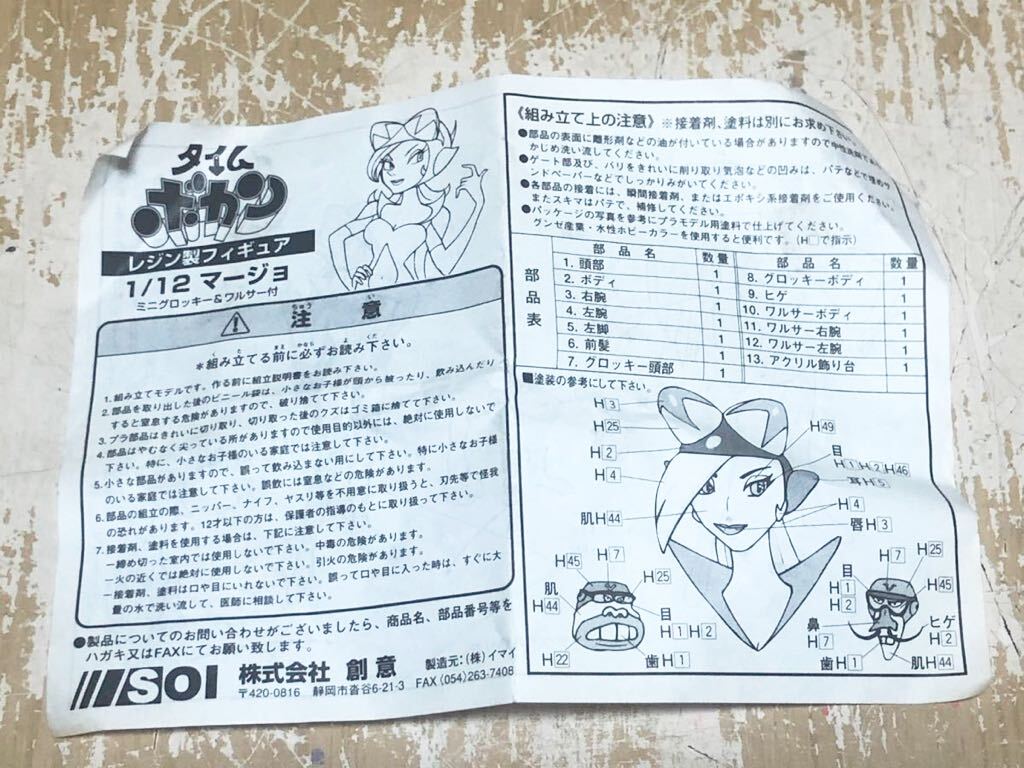 タイム
ボカン
レジン製フィギュア
1/12 マージョ
ミニグロッキー&ワルサー付
注 意
ちゅう い
*組み立てる前に必ずお読み下さい。
1. 組み立てモデルです。作る前に組立説明書をお読み下さい。
2. 部品を取り出した後のビニール袋は、小さなお子様が頭から被ったり、飲み込んだり
すると窒息する危険がありますので、破り捨てて下さい。
3. プラ部品はきれいに切り取り、切り取った後のクズはゴミ箱に捨てて下さい。
4. 部品はやむなく尖っている所がありますので使用目的以外には、絶対に使用しないで
下さい。特に、小さなお子様のいる家庭では注意して下さい。
5. 小さな部品がありますので、誤って飲み込まない用にして下さい。特に小さなお子様
のいる家庭では注意して下さい。誤飲には窒息などの危険があります。
6. 部品の組立の際、ニッパー、ナイフ、ヤスリ等を不用意に取り扱うと、刃先等で怪我
の恐れがあります。12才以下の方は、保護者の指導のもとに取り扱って下さい。
7. 接着剤、塗料を使用する場合は、下記に注意して下さい。
ー締め切った室内では使用しないで下さい。中毒の危険があります。
ー火の近くでは絶対に使用しないで下さい。引火の危険があります。
ー接着剤、塗料は口や目にいれないで下さい。誤って口や目に入った時は、すぐに大
量の水で洗い流して、医師に相談して下さい。
●製品についてのお問い合わせがございましたら、商品名、部品番号等を
ハガキ又はFAXにてお願い致します。
SOI 株式会社 創意 製造元:(株)イマイ
〒420-0816 静岡市沓谷6-21-3 FAX(054)263-7408
《組み立て上の注意》※接着剤、塗料は別にお求め下さい
●部品の表面に離形剤などの油が付いている場合がありますので中性洗剤で
かじめ洗い流してください。
●ゲート部及び、バリをきれいに削り取り気泡などの凹みは、パテなどで埋めサ
ンドペーパーなどでしっかりみがいてください。
●各部品の接着には、瞬間接着剤、またはエポキシ系接着剤をご使用ください。
またスキマはパテで、補修してください。
●パッケージの写真を参考にプラモデル用塗料で仕上げてください。
グンゼ産業・水性ホビーカラーを使用すると便利です。(H□で指示)
部品表
部 品 名 数量 部 品 名 数量
1. 頭部 1 8. グロッキーボディ 1
2. ボディ 1 9. ヒゲ 1
3. 右腕 1 10. ワルサーボディ 1
4. 左腕 1 11. ワルサー右腕 1
5. 左脚 1 12. ワルサー左腕 1
6. 前髪 1 13. アクリル飾り台 1
7. グロッキー頭部 1
■塗装の参考にして下さい。
H3
H25
H2
H4
肌H44
H49
目
H1H2H46
耳H5
H4
唇H3
H45
H7
H25
肌
H44
目
H1H2
H22
歯H1
H7
H25
H45
目
H1
H2
鼻
H7
ヒゲ
H2
歯H1
肌H44